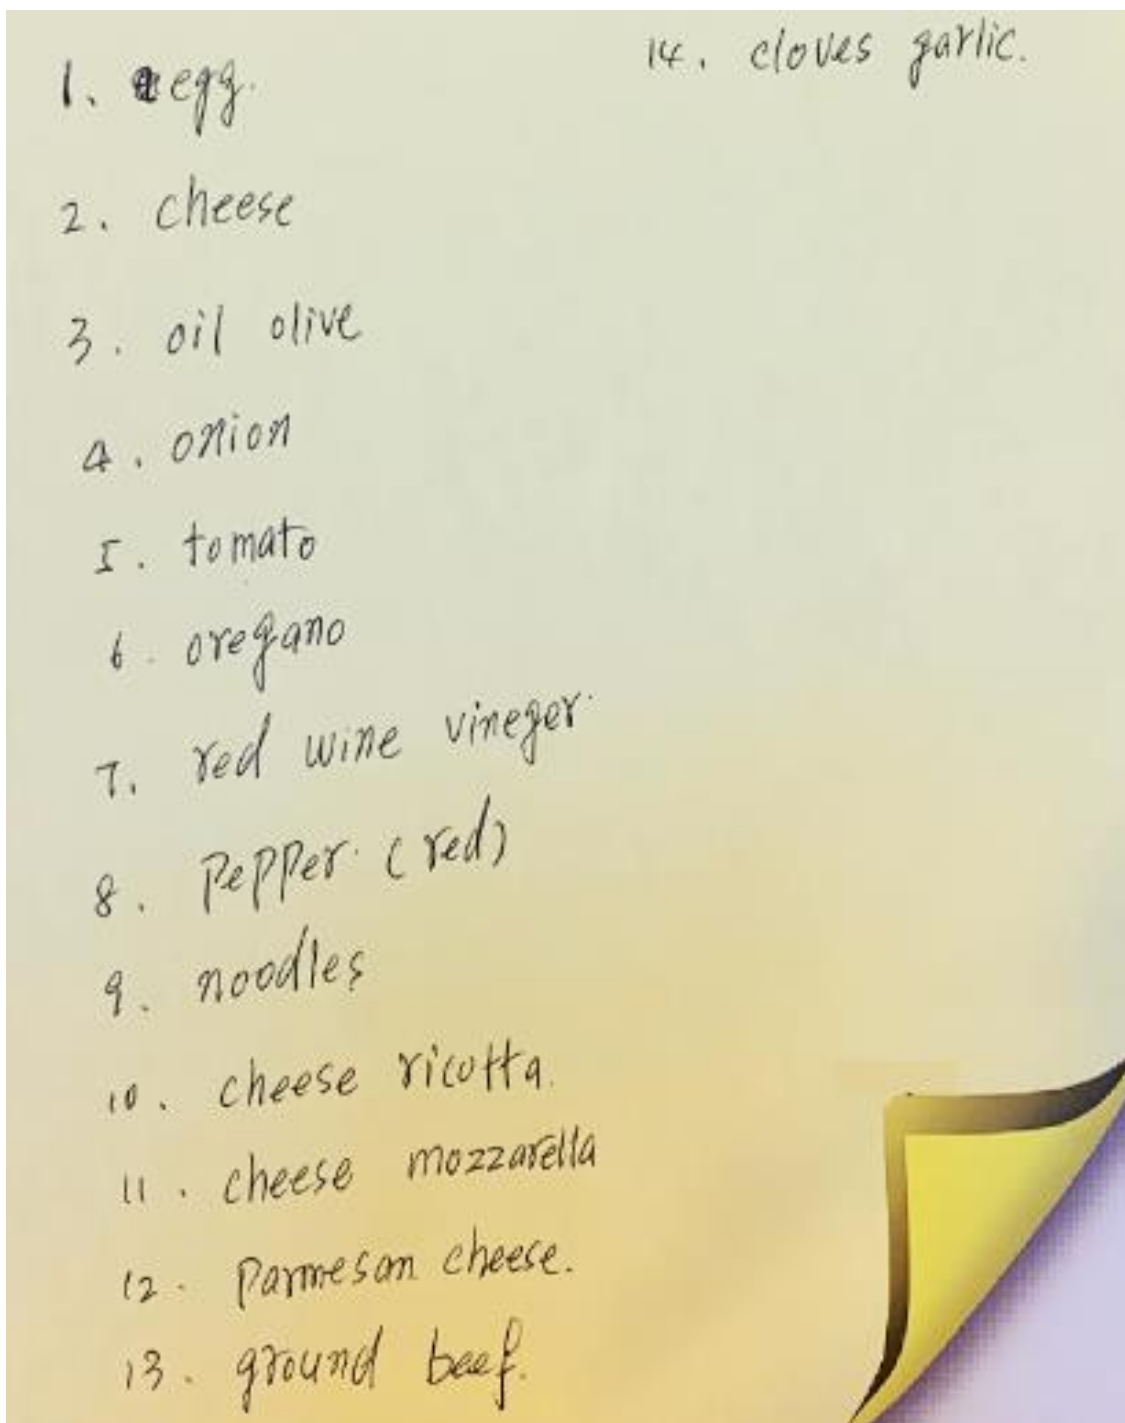 1. egg.
2. cheese
3. oil olive
4. onion
5. tomato
6. oregano
7. red wine vineger
8. Pepper (red)
9. noodles
10. cheese ricotta.
11. cheese mozzarella
12. Parmesan cheese.
13. ground beef.
14. cloves garlic.